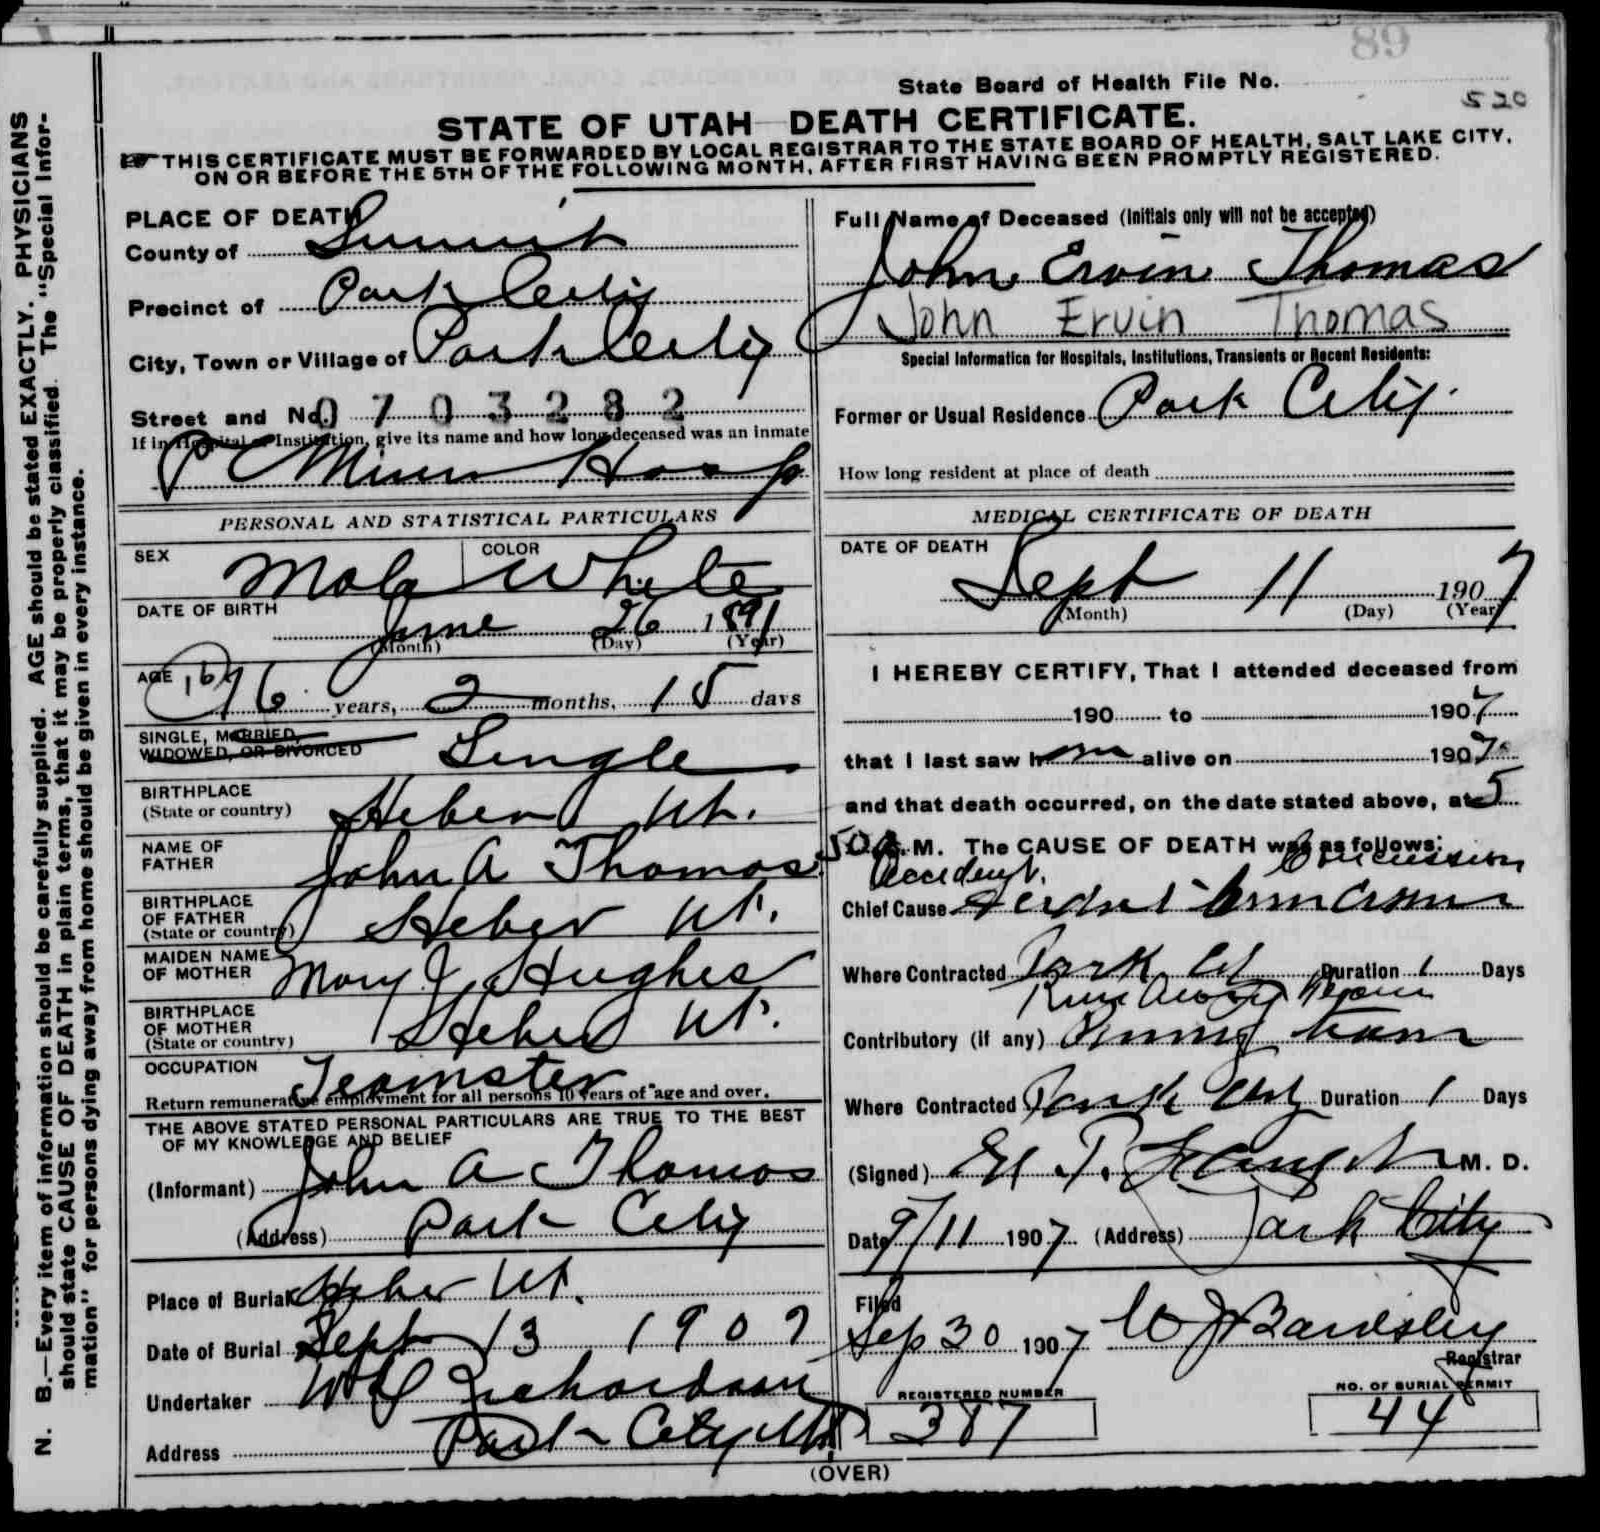 89
State Board of Health File No.
520
STATE OF UTAH—DEATH CERTIFICATE.
THIS CERTIFICATE MUST BE FORWARDED BY LOCAL REGISTRAR TO THE STATE BOARD OF HEALTH, SALT LAKE CITY,
ON OR BEFORE THE 5TH OF THE FOLLOWING MONTH, AFTER FIRST HAVING BEEN PROMPTLY REGISTERED.
N. B.—Every item of information should be carefully supplied. AGE should be stated EXACTLY. PHYSICIANS
should state CAUSE OF DEATH in plain terms, that it may be properly classified. The "Special Infor-
mation" for persons dying away from home should be given in every instance.
PLACE OF DEATH
County of Summit
Precinct of Park City
City, Town or Village of Park City
Street and No. 0703282
If in Hospital or Institution, give its name and how long deceased was an inmate
P C Miners Hosp
Full Name of Deceased (Initials only will not be accepted)
John Ervin Thomas
John Ervin Thomas
Special Information for Hospitals, Institutions, Transients or Recent Residents:
Former or Usual Residence Park City.
How long resident at place of death
PERSONAL AND STATISTICAL PARTICULARS
SEX Male COLOR White
DATE OF BIRTH June 26 1891
(Month) (Day) (Year)
AGE 16 years, 2 months, 15 days
SINGLE, MARRIED,
WIDOWED, OR DIVORCED Single
BIRTHPLACE
(State or country) Heber Ut.
NAME OF
FATHER John A Thomas
BIRTHPLACE
OF FATHER
(State or country) Heber Ut.
MAIDEN NAME
OF MOTHER Mary J Hughes
BIRTHPLACE
OF MOTHER
(State or country) Heber Ut.
OCCUPATION Teamster
Return remunerative employment for all persons 10 years of age and over.
THE ABOVE STATED PERSONAL PARTICULARS ARE TRUE TO THE BEST
OF MY KNOWLEDGE AND BELIEF
(Informant) John A Thomas
(Address) Park City
Place of Burial Heber Ut.
Date of Burial Sept 13 1907
Undertaker Richardson
Address Park City Ut.
MEDICAL CERTIFICATE OF DEATH
DATE OF DEATH
Sept 11 1907
(Month) (Day) (Year)
I HEREBY CERTIFY, That I attended deceased from
190 to 1907
that I last saw him alive on 1907
and that death occurred, on the date stated above, at 5
50 a.M. The CAUSE OF DEATH was as follows:
Accident. Concussion
Chief Cause
Where Contracted Park City Duration 1 Days
Run Away
Contributory (if any) team
Where Contracted Park City Duration 1 Days
(Signed) M. D.
Date 9/11 1907 (Address) Park City
Filed
Sep 30 1907 W J Bardsley
Registrar
REGISTERED NUMBER
387
NO. OF BURIAL PERMIT
44
(OVER)